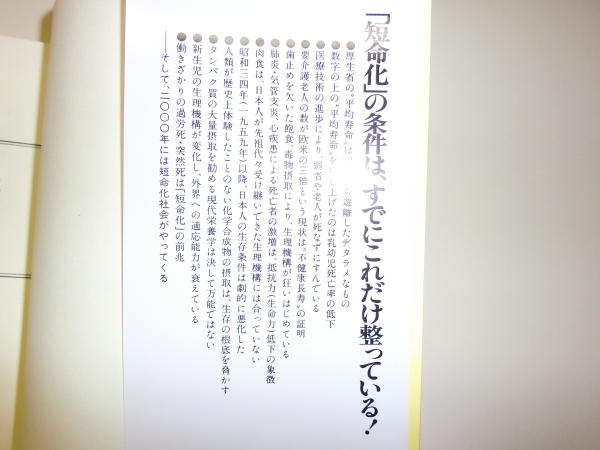 「短命化」の条件は、すでにこれだけ整っている！
●厚生省の"平均寿命"は 遊離したデタラメなもの
●数字の上の"平均寿命"を し上げたのは乳幼児死亡率の低下
●医療技術の進歩により、弱者や老人が死なずにすんでいる
●要介護老人の数が欧米の三倍という現状は"不健康長寿"の証明
●歯止めを欠いた飽食、毒物摂取により、生理機構が狂いはじめている
●肺炎・気管支炎、心疾患による死亡者の激増は、抵抗力(生命力)低下の象徴
●肉食は、日本人が先祖代々受け継いできた生理機構には合っていない
●昭和三四年(一九五九年)以降、日本人の生存条件は劇的に悪化した
●人類が歴史上体験したことのない化学合成物の摂取は、生存の根底を脅かす
●タンパク質の大量摂取を勧める現代栄養学は決して万能ではない
●新生児の生理機構が変化し、外界への適応能力が衰えている
●働きざかりの過労死・突然死は「短命化」の前兆
──そして、二〇〇〇年には短命化社会がやってくる